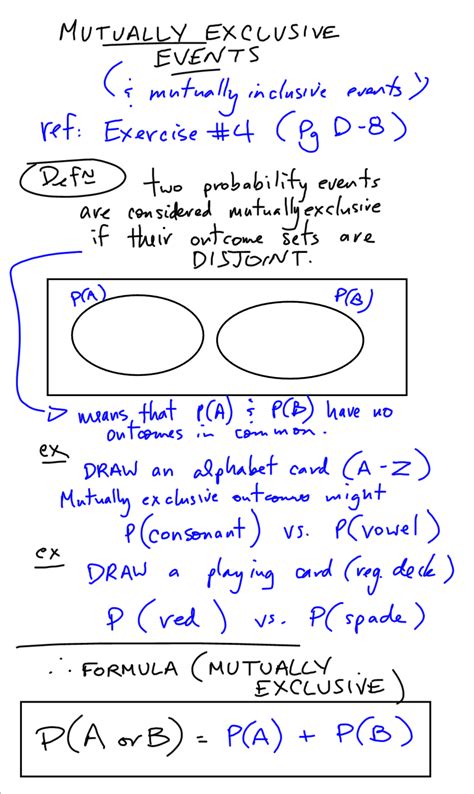 MUTUALLY EXCLUSIVE
EVENTS
(& mutually inclusive events)
ref: Exercise #4 (Pg D-8)
Defn two probability events
are considered mutually exclusive
if their outcome sets are
DISJOINT.
P(A) P(B)
means that P(A) & P(B) have no
outcomes in common.
ex DRAW an alphabet card (A-Z)
Mutually exclusive outcomes might
P(consonant) vs. P(vowel)
ex DRAW a playing card (reg. deck)
P (red) vs. P(spade)
∴ FORMULA (MUTUALLY
EXCLUSIVE)
P(A or B) = P(A) + P(B)